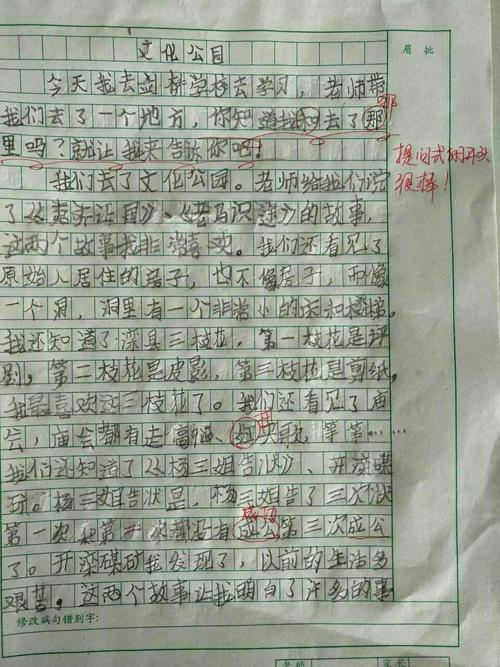 眉批
文化公园
今天我去剑桥学校去学习，老师带
我们去了一个地方，你知道我们去了那
那
里吗？就让我来告诉你吧！
提问式的开头
很棒！
我们去了文化公园。老师给我们说
了《夷齐让国》、《老马识途》的故事，
这两个故事我非常喜欢。我们还看见了
原始人居住的房子，也不像房子，而像
一个洞，洞里有一个非常小的床和楼梯。
我还知道了滦县三枝花，第一枝花是评
剧，第二枝花是皮影，第三枝花是剪纸，
我最喜欢这三枝花了。我们还看见了庙
会，庙会都有走高跷、秧歌等等……
我们还知道了《杨三姐告状》、开滦碟
矿。杨三姐告状是，杨三姐告了三次状
第一次和第二次都没有成公第三次成公
成功
了。开滦碟矿我发现了，以前的生活多
艰苦，这两个故事让我明白了许多的事
修改病句错别字：
老师
家长